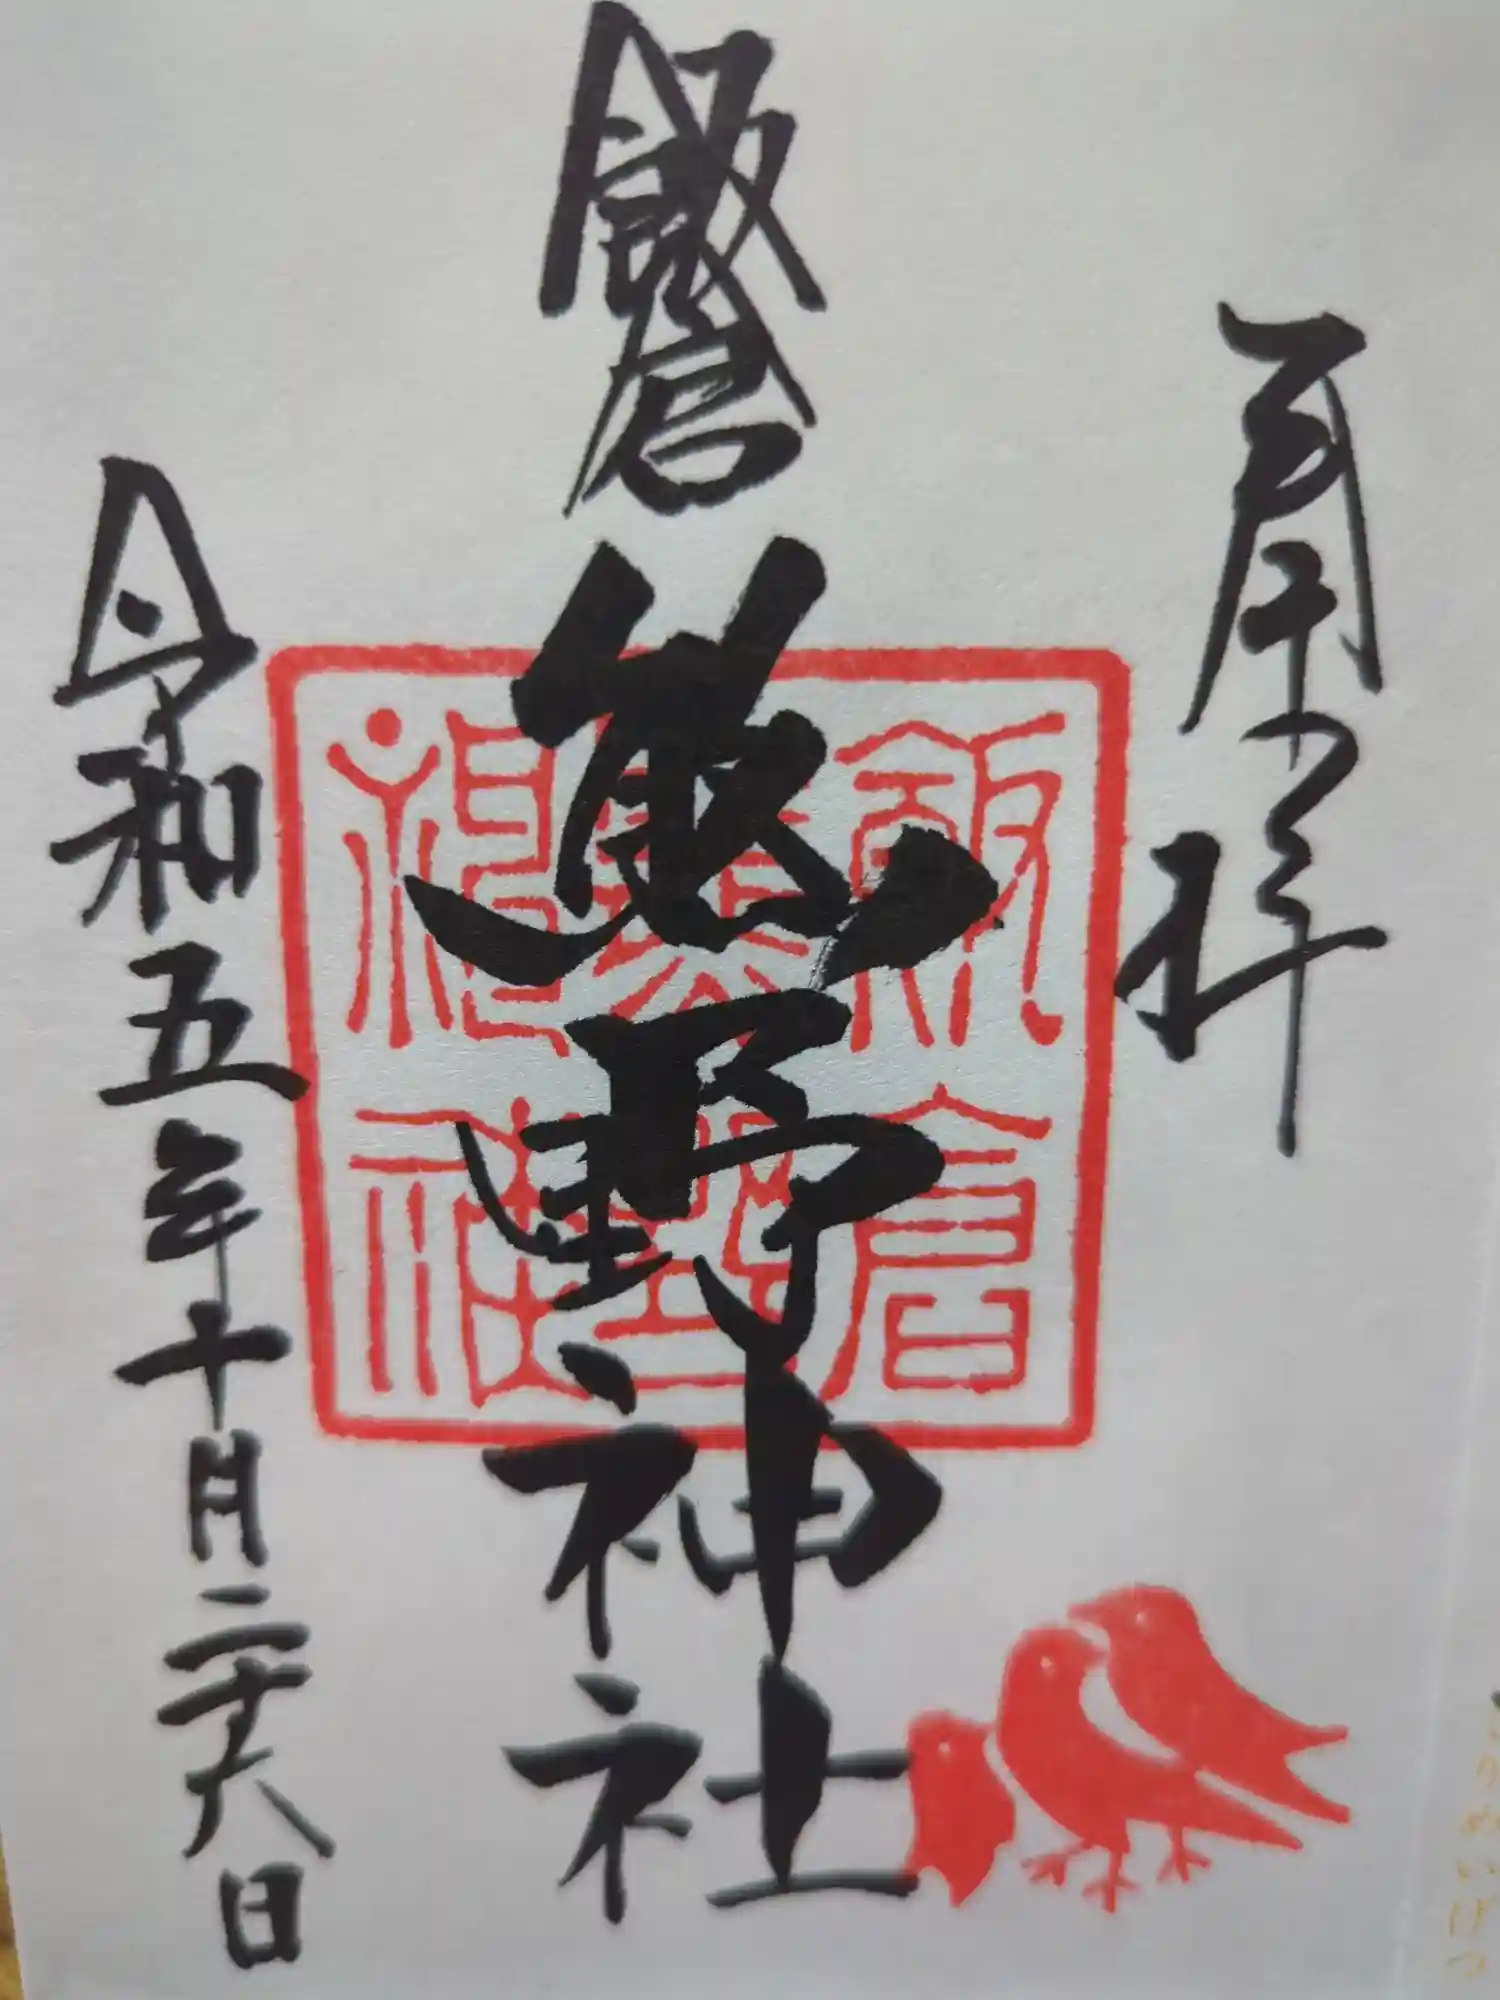 奉拝
飯倉
熊野神社
飯倉
熊野
神社
令和五年十月二十八日